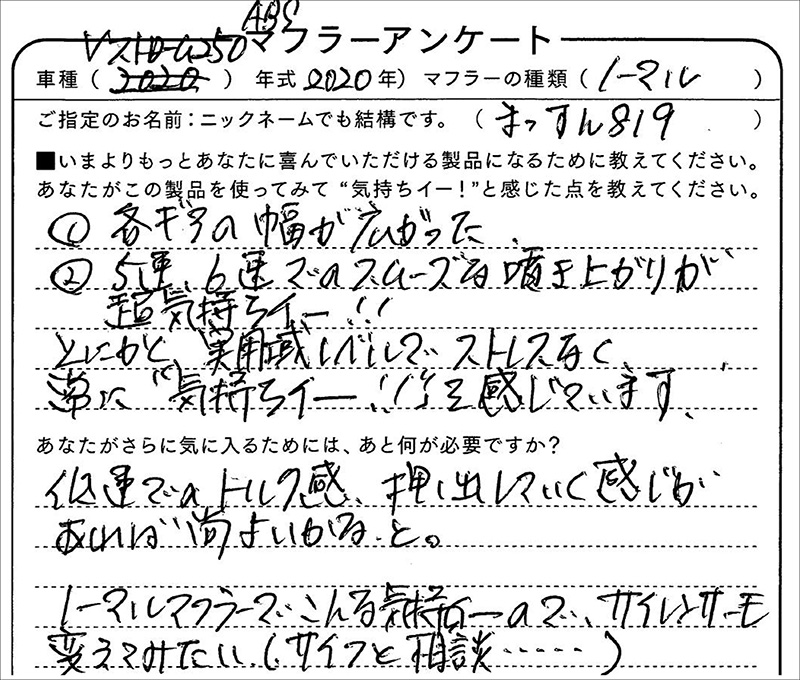 ABS
Vストローム250 マフラーアンケート
車種（2020）年式2020年）マフラーの種類（ノーマル）
ご指定のお名前：ニックネームでも結構です。（まっすん819）
■いまよりもっとあなたに喜んでいただける製品になるために教えてください。
あなたがこの製品を使ってみて“気持ちイー！”と感じた点を教えてください。
① 各ギアの幅が広がった。
② 5速、6速でのスムーズな噴き上がりが
超気持ちイー!!
とにかく、実用域レベルで ストレスなく、
常に“気持ちイー!!”と感じています。
あなたがさらに気に入るためには、あと何が必要ですか？
低速でのトルク感、押し出していく感じが
あれば尚よいかな と。
ノーマルマフラーでこんな気持ちイーので、サイレンサーも
変えてみたい。（サイフと相談……）